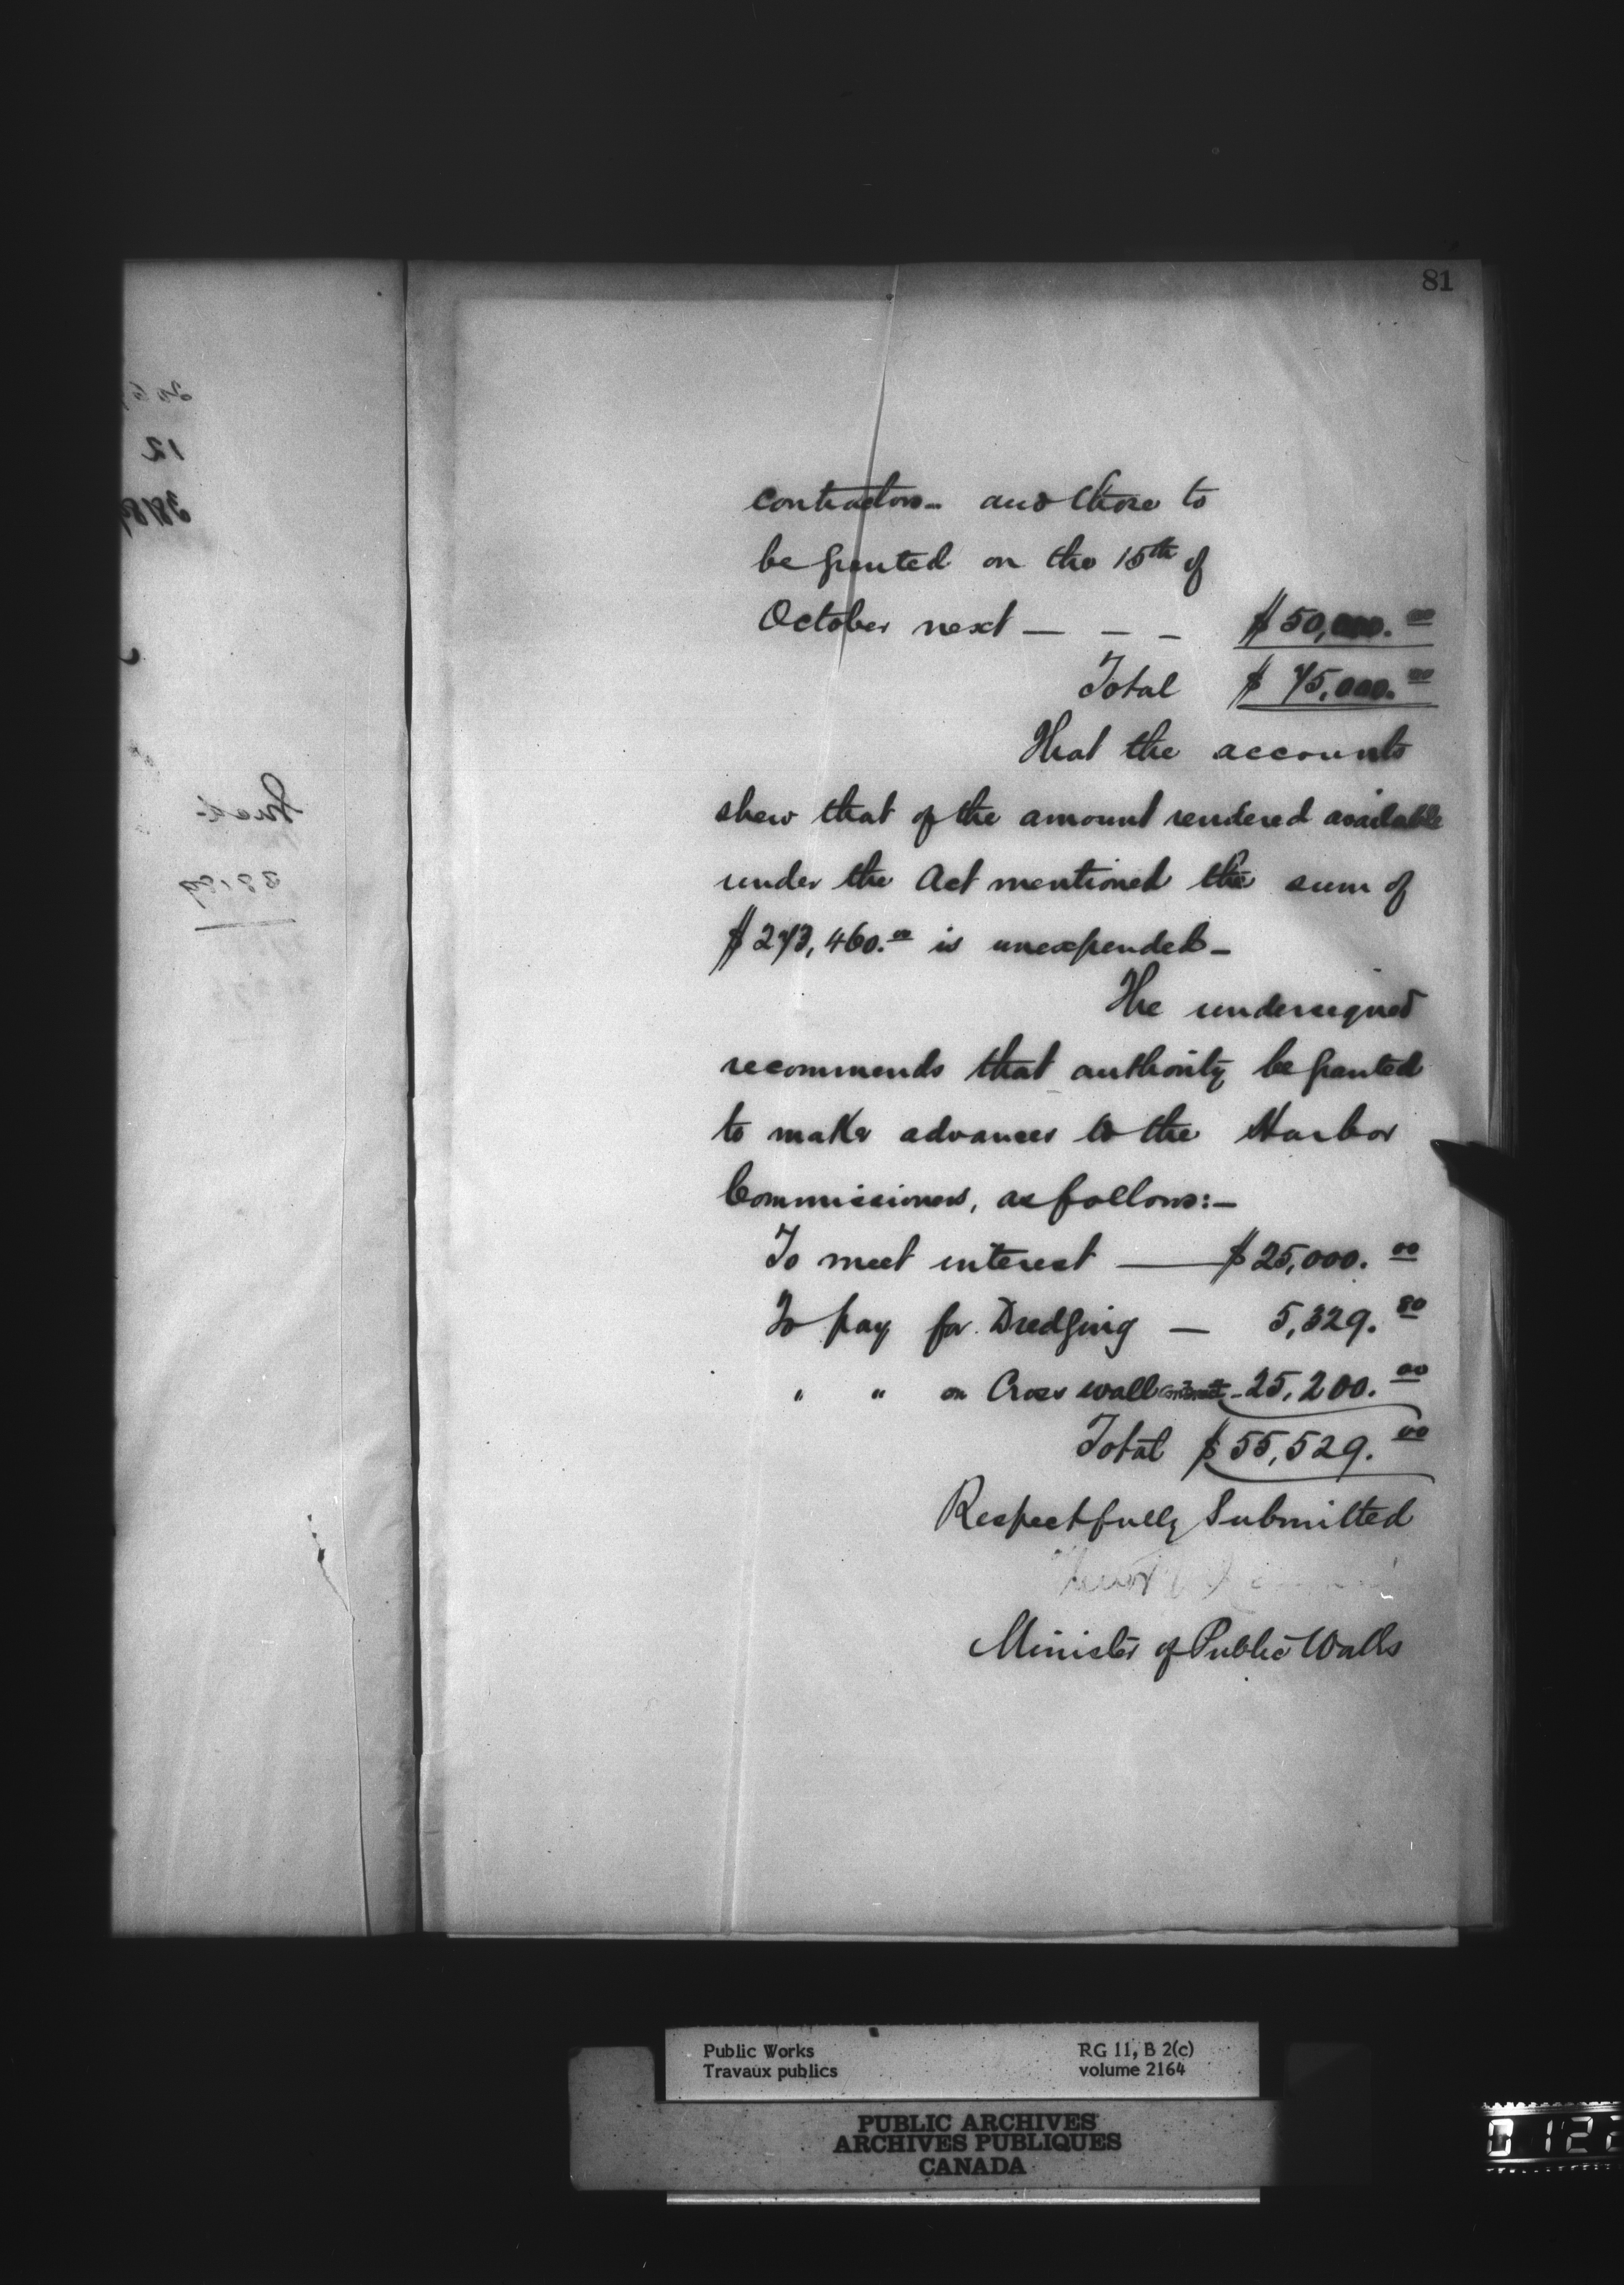 81
contractors - and those to
be granted on the 15th of
October next — — — $50,000.00
Total $75,000.00
That the accounts
shew that of the amount rendered available
under the Act mentioned the sum of
$273,460.00 is unexpended -
The undersigned
recommends that authority be granted
to make advances to the Harbor
Commissioners, as follows:—
To meet interest — $25,000.00
To pay for Dredging — 5,329.80
" " on Cross wall contract - 25,200.00
Total $55,529.00
Respectfully Submitted
Minister of Public Works
12
38189
Public Works
Travaux publics
RG 11, B 2(c)
volume 2164
PUBLIC ARCHIVES
ARCHIVES PUBLIQUES
CANADA